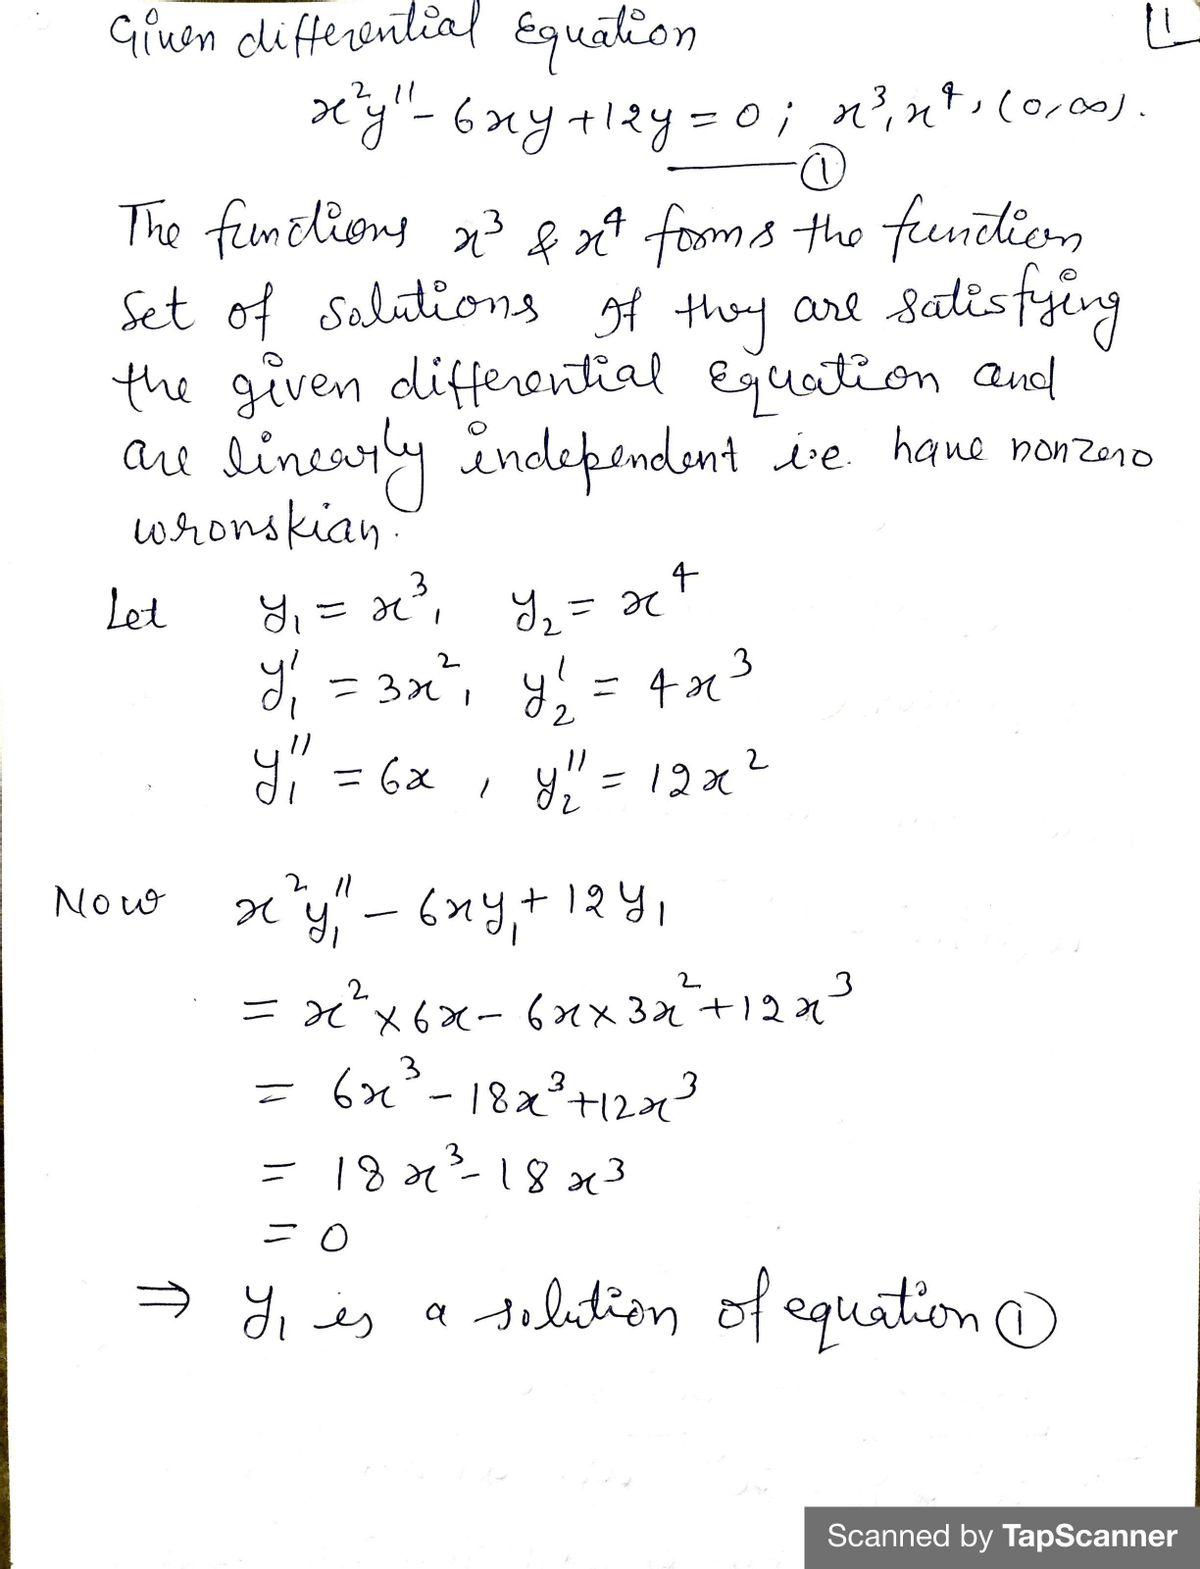 Given differential Equation
1
x²y'' - 6xy + 12y = 0 ; x³, x⁴, (0,∞).
①
The functions x³ & x⁴ forms the function
Set of solutions If they are satisfying
the given differential Equation and
are linearly independent i.e. have nonzero
wronskian.
Let y₁ = x³, y₂ = x⁴
y₁' = 3x², y₂' = 4x³
y₁'' = 6x , y₂'' = 12x²
Now x²y₁'' - 6xy₁ + 12y₁
= x² × 6x - 6x × 3x² + 12x³
= 6x³ - 18x³ + 12x³
= 18x³ - 18x³
= 0
⇒ y₁ is a solution of equation ①
Scanned by TapScanner